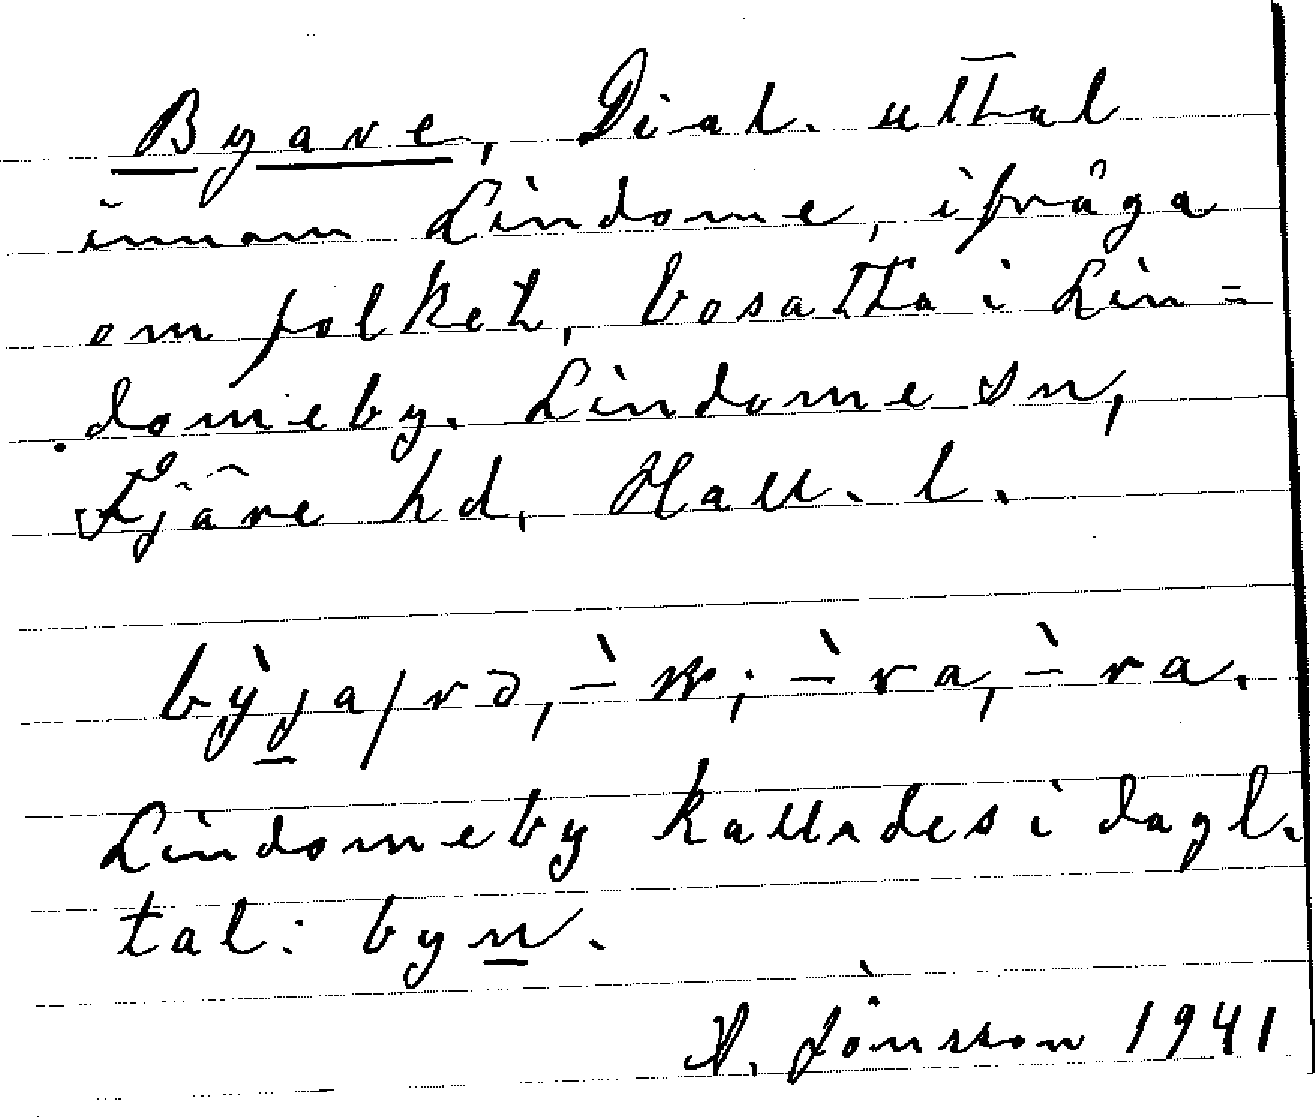 Byare, Dial. uttal
innom Lindome, ifråga
om folket, bosatta i Lin=
domeby. Lindome sn,
Fjäre hd, Hall. l.
bỳja/rə, -̀ n; -̀ ra, -̀ ra.
Lindomeby kallades i dagl.
tal: byn.
A. Jönsson 1941